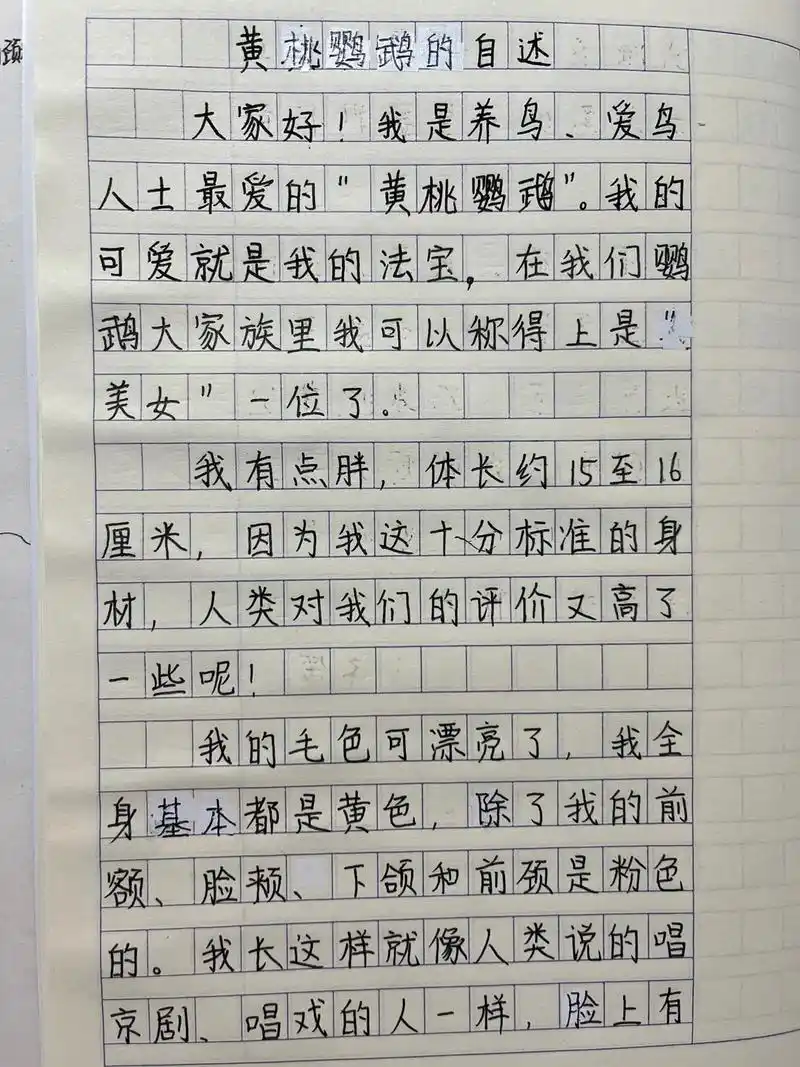 颈
黄桃鹦鹉的自述
大家好！我是养鸟、爱鸟
人士最爱的“黄桃鹦鹉”。我的
可爱就是我的法宝，在我们鹦
鹉大家族里我可以称得上是“
美女”一位了。
我有点胖，体长约15至16
厘米，因为我这十分标准的身
材，人类对我们的评价又高了
一些呢！
我的毛色可漂亮了，我全
身基本都是黄色，除了我的前
额、脸颊、下颌和前颈是粉色
的。我长这样就像人类说的唱
京剧、唱戏的人一样，脸上有